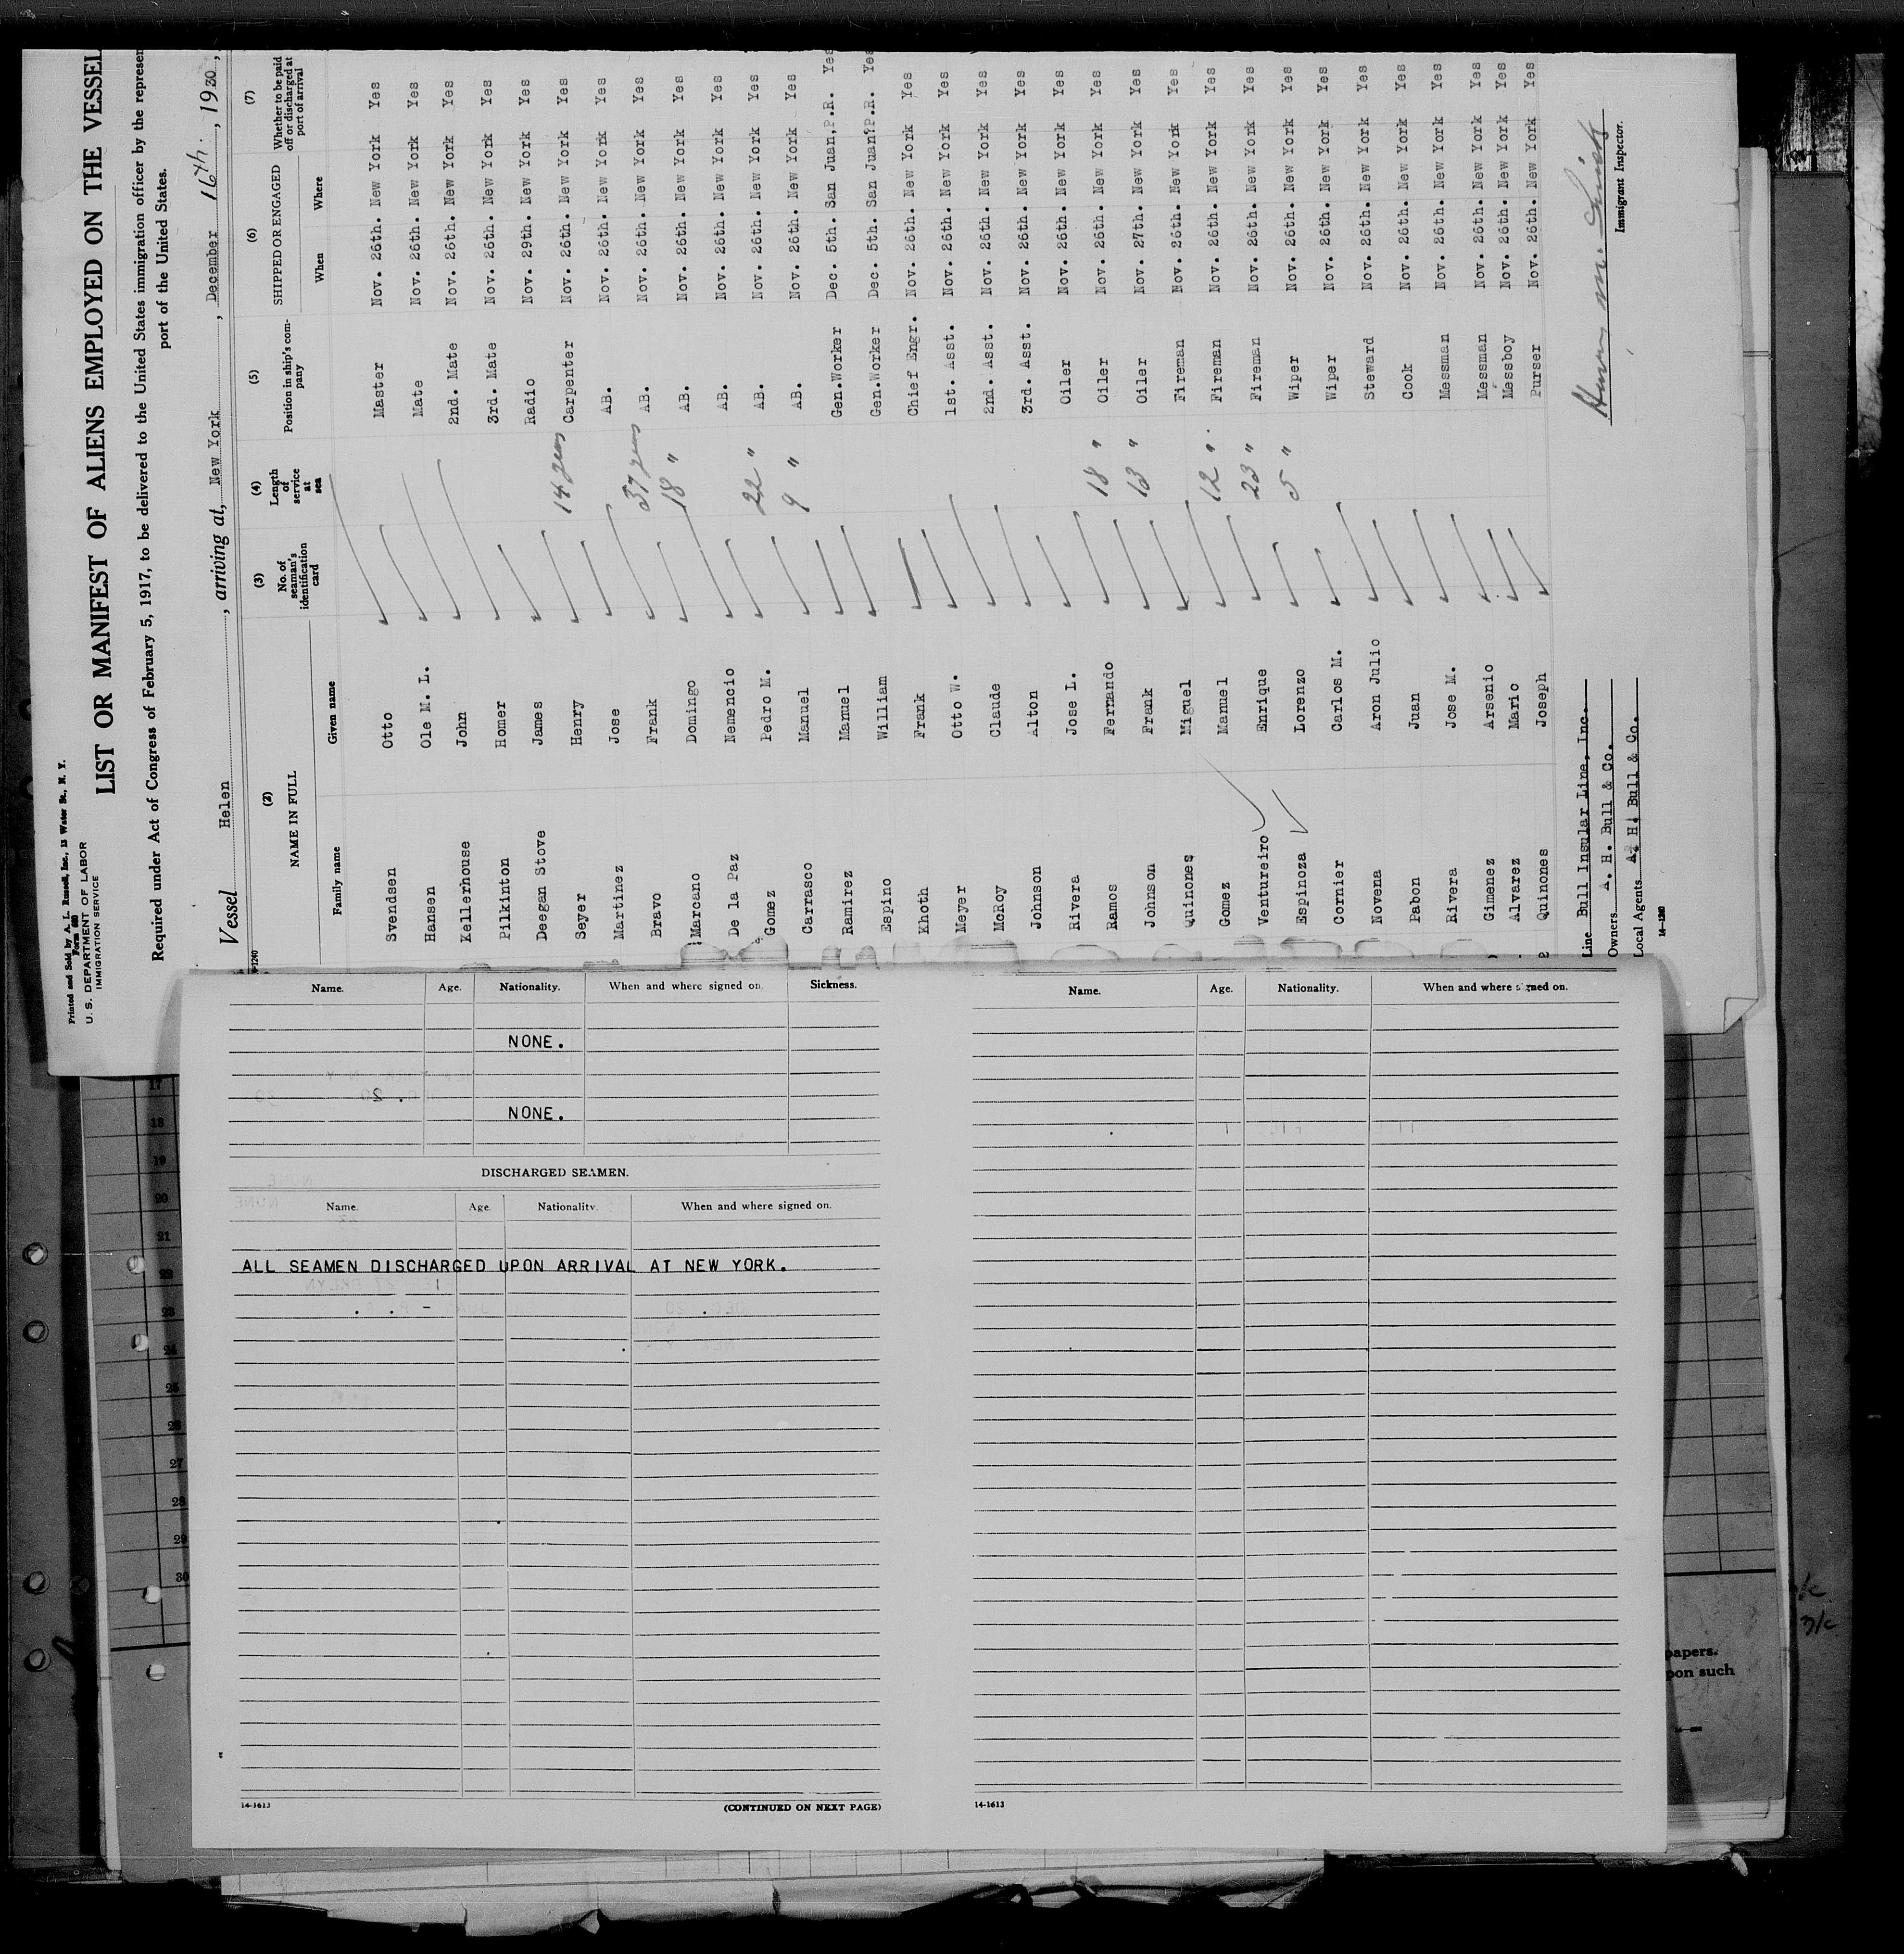 Printed and Sold by A. L. Russell, Inc., 13 Water St., N. Y.
Form 680
U. S. DEPARTMENT OF LABOR
IMMIGRATION SERVICE
LIST OR MANIFEST OF ALIENS EMPLOYED ON THE VESSEL
Required under Act of Congress of February 5, 1917, to be delivered to the United States immigration officer by the represen
port of the United States.
Vessel Helen , arriving at, New York , December 16th. , 1930 ,
(2) (3) (4) (5) (6) (7)
NAME IN FULL No. of seaman's identification card Length of service at sea Position in ship's company SHIPPED OR ENGAGED Whether to be paid off or discharged at port of arrival
Family name Given name When Where
Svendsen Otto Master Nov. 26th. New York Yes
Hansen Ole M. L. Mate Nov. 26th. New York Yes
Kellerhouse John 2nd. Mate Nov. 26th. New York Yes
Pilkinton Homer 3rd. Mate Nov. 26th. New York Yes
Deegan Stove James Radio Nov. 29th. New York Yes
Seyer Henry 14 years Carpenter Nov. 26th. New York Yes
Martinez Jose AB. Nov. 26th. New York Yes
Bravo Frank 37 years AB. Nov. 26th. New York Yes
Marcano Domingo 18 " AB. Nov. 26th. New York Yes
De la Paz Nemencio AB. Nov. 26th. New York Yes
Gomez Pedro M. 22 " AB. Nov. 26th. New York Yes
Carrasco Manuel 9 " AB. Nov. 26th. New York Yes
Ramirez Manuel Gen.Worker Dec. 5th. San Juan,P.R. Yes
Espino William Gen.Worker Dec. 5th. San Juan?P.R. Yes
Khoth Frank Chief Engr. Nov. 26th. New York Yes
Meyer Otto W. 1st. Asst. Nov. 26th. New York Yes
McRoy Claude 2nd. Asst. Nov. 26th. New York Yes
Johnson Alton 3rd. Asst. Nov. 26th. New York Yes
Rivera Jose L. Oiler Nov. 26th. New York Yes
Ramos Fernando 18 " Oiler Nov. 26th. New York Yes
Johnson Frank 13 " Oiler Nov. 27th. New York Yes
Quinones Miguel Fireman Nov. 26th. New York Yes
Gomez Manuel 12 " Fireman Nov. 26th. New York Yes
Ventureiro Enrique 23 " Fireman Nov. 26th. New York Yes
Espinoza Lorenzo 5 " Wiper Nov. 26th. New York Yes
Cornier Carlos M. Wiper Nov. 26th. New York Yes
Novena Aron Julio Steward Nov. 26th. New York Yes
Pabon Juan Cook Nov. 26th. New York Yes
Rivera Jose M. Messman Nov. 26th. New York Yes
Gimenez Arsenio Messman Nov. 26th. New York Yes
Alvarez Mario Messboy Nov. 26th. New York Yes
Quinones Joseph Purser Nov. 26th. New York Yes
Line Bull Insular Line, Inc.
Owners A. H. Bull & Co.
Local Agents A. H. Bull & Co.
Immigrant Inspector.
14-1240
Name. Age. Nationality. When and where signed on. Sickness.
NONE.
NONE.
DISCHARGED SEAMEN.
Name. Age. Nationality. When and where signed on.
ALL SEAMEN DISCHARGED UPON ARRIVAL AT NEW YORK.
14-1613 (CONTINUED ON NEXT PAGE)
Name. Age. Nationality. When and where signed on.
14-1613
17
18
19
20
21
22
23
24
25
26
27
28
29
30
papers.
pon such